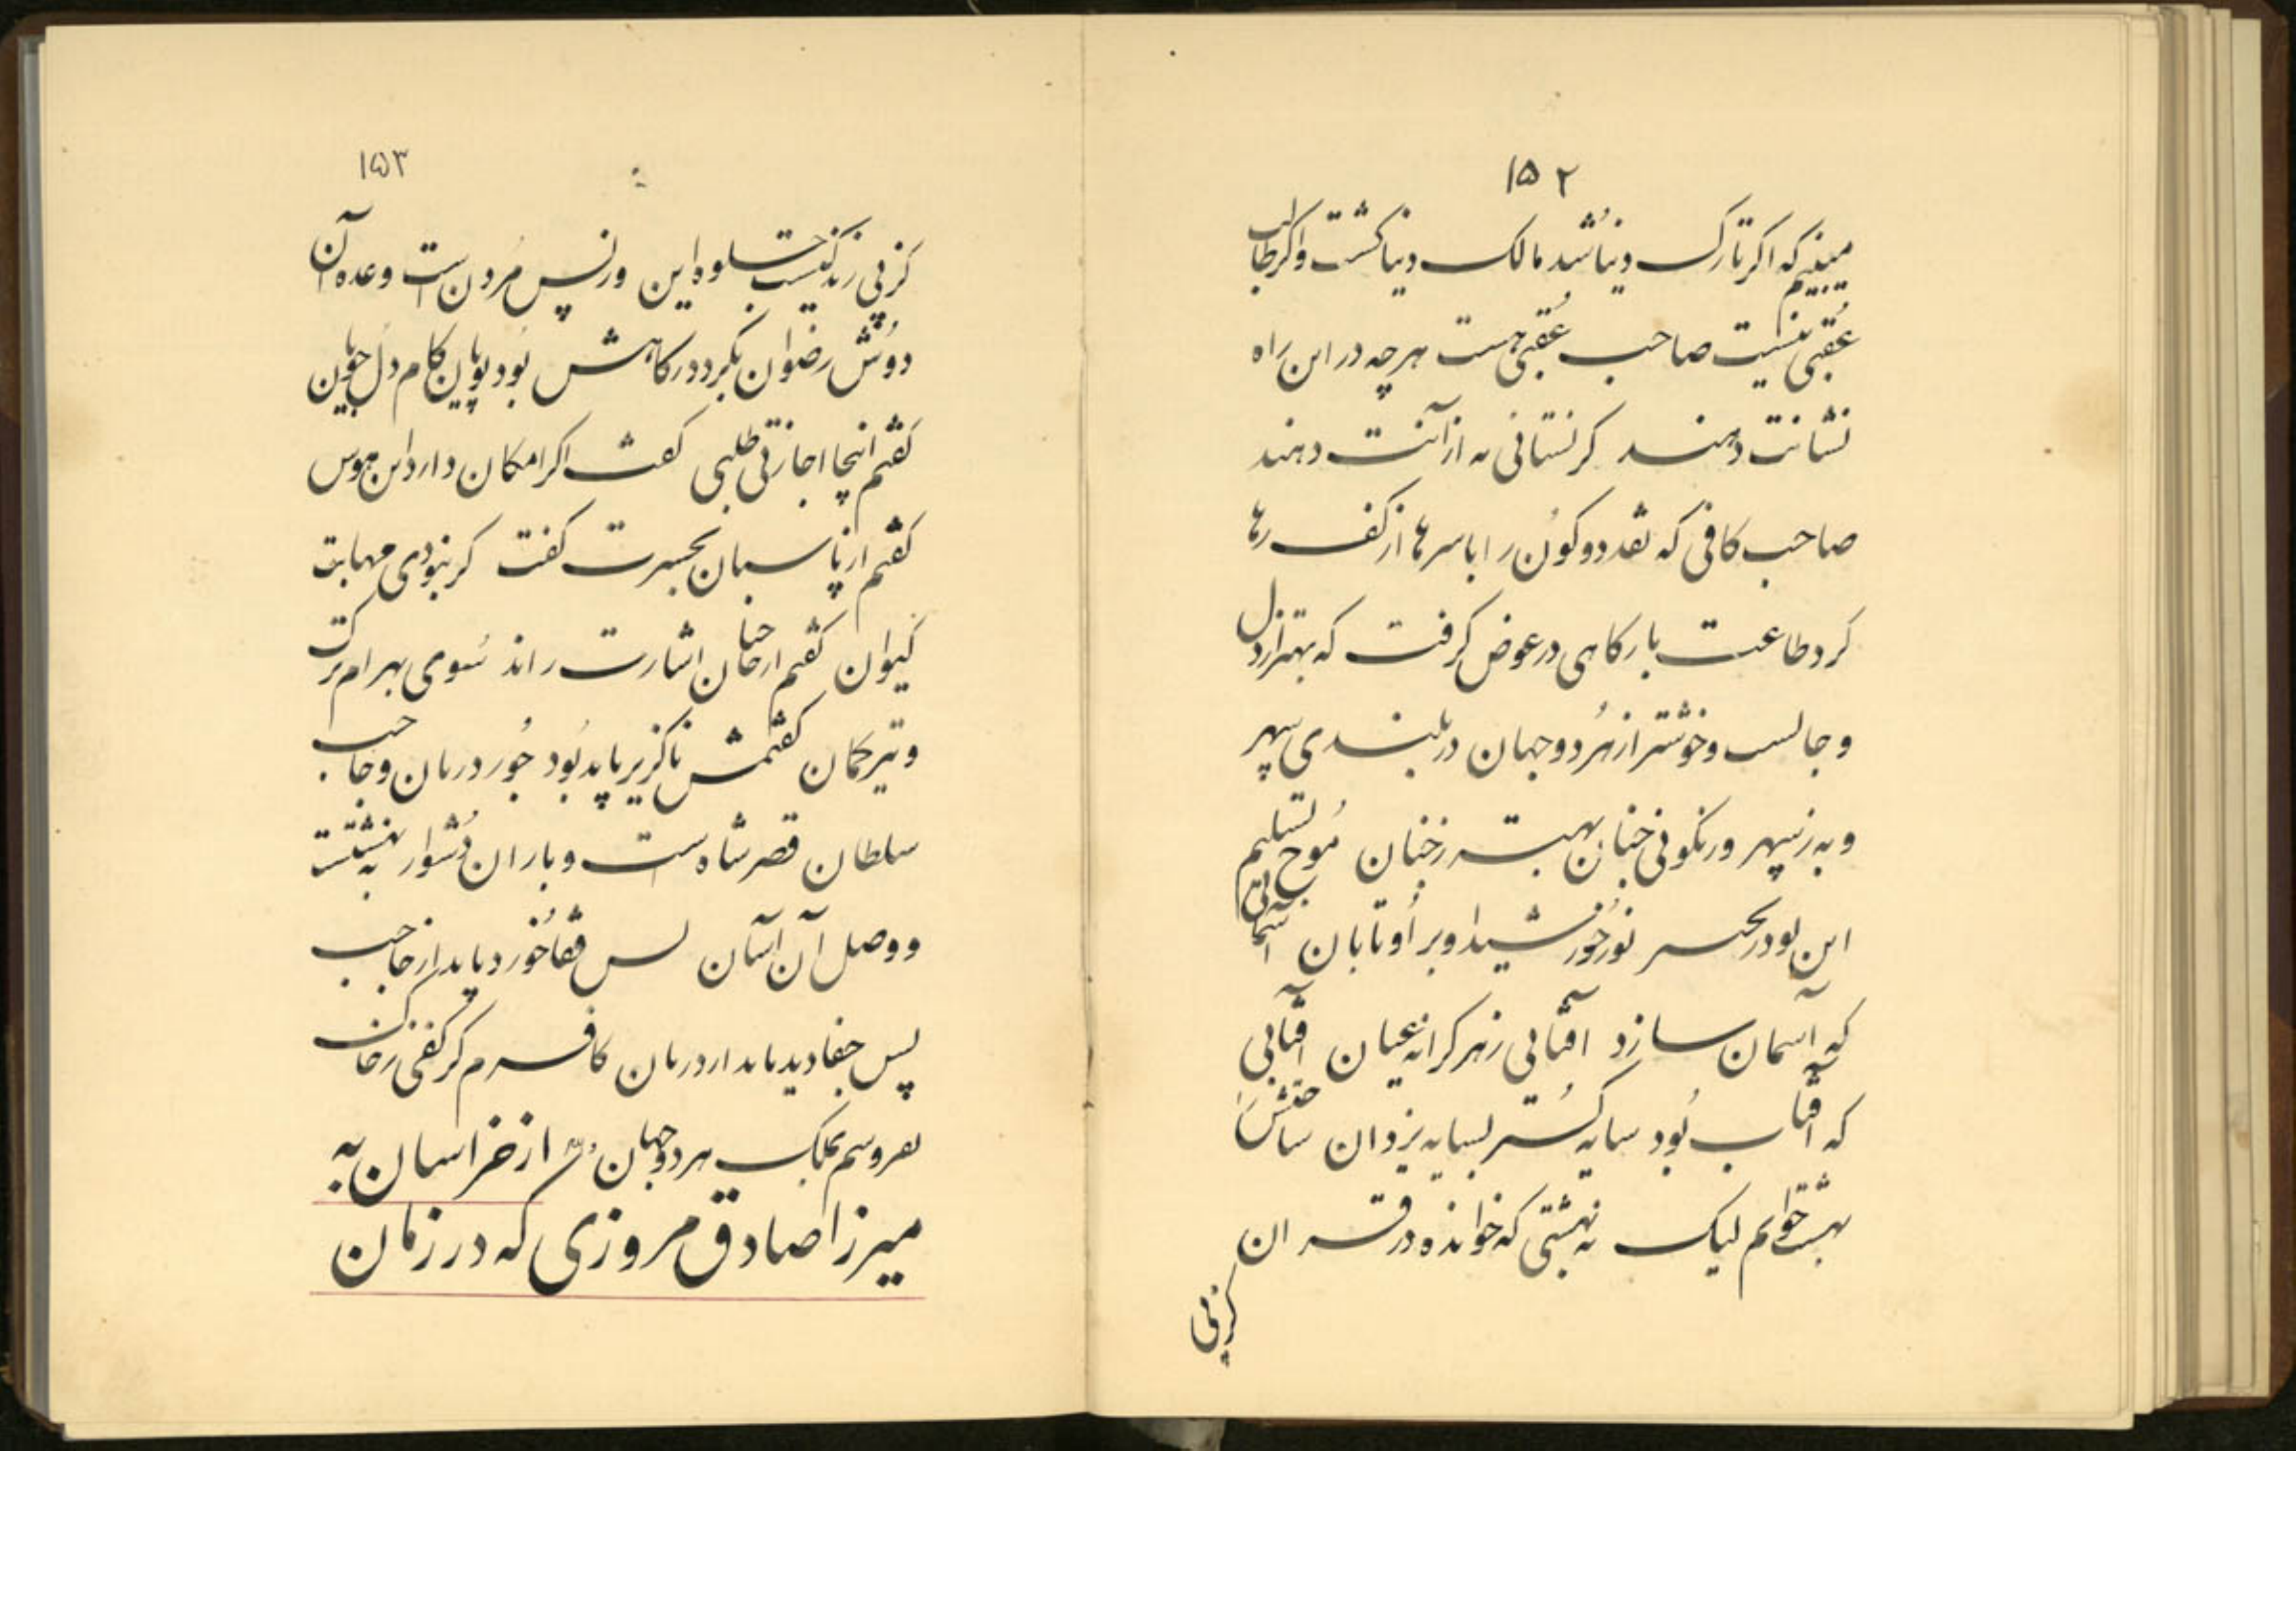 ۱۵۲
میبینیم که اکر تارک دنیا شد مالک دنیا کشت واکر طالب
عُقبی نیست صاحب عُقبی هست هر چه در این راه
نشانت دهند کر نستانی به از آنت دهند
صاحب کافی که نقد دو کون را با سرها از کف رها
کرد طاعت بارکاهی در عوض کرفت که بهتر از دل
و جانست و خوشتر از هُر دو جهان در بلندی سپهر
و به ز سپهر ور نکوئی جنان بهتر ز جنان مُوج تسلیم
این بود در بحر نُور خورشید او بر اُو تابان آسمانی
که آسمان سازد آفتابی ز هر کرانه عیان آفتابی
که آفتاب بُود سایه کُستر بسایه یزدان ساحتش
بهشت خوانم لیک نه بهشتی که خوانده در قران
کز پی
۱۵۳
کز پی زندکیست جلوه این وز پس مُردن است وعده آن
دُوش رضوان بکرد درکاهش بُود پویان بکام دل جویان
کفتم اینجا اجازتی طلبی کفت اکر امکان دارد این هوس
کفتم از پاسبان بحسرت کفت کر نبودی مهابت
کیوان کفتم ارخان اشارت راند سُوی بهرام ترکت
و تیر کمان کفتمش ناکزیر باید بُود جُور دربان و حاجب
سلطان قصر شاه ست و باران دُشوار به نشست
و وصل آن آستان بس قفا خورد باید از حاجب
پس جفا دید باید از دربان کافرم کر کفی ز خاک
بفروشم بملک هر دو جهان از خراسان به
میرزا صادق مروزی که در زمان